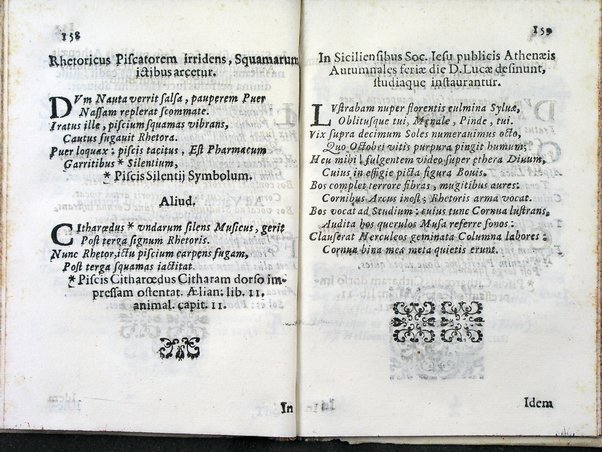 158
Rhetoricus Piscatorem irridens, Squamarum
ictibus arcetur.
DVm Nauta verrit salsa, pauperem Puer
Nassam replerat scommate.
Iratus ille, piscium squamas vibrans,
Cautus fugauit Rhetora.
Puer loquax: piscis tacitus, Est Pharmacum
Garritibus * Silentium,
* Piscis Silentij Symbolum.
Aliud.
CItharœdus * vndarum silens Musicus, gerit
Post terga signum Rhetoris.
Nunc Rhetor, ictu piscium carpens fugam,
Post terga squamas iactitat.
* Piscis Citharœdus Citharam dorso im-
pressam ostentat. Ælian. lib. 11.
animal. capit. 11.
In
159
In Siciliensibus Soc. Iesu publicis Athenæis
Autumnales feriæ die D. Lucæ desinunt,
studiaque instaurantur.
LVstrabam nuper florentis culmina Syluæ,
Oblitusque tui, Mænale, Pinde, tui.
Vix supra decimum Soles numerauimus octo,
Quo Octobri vitis purpura pingit humum;
Heu mihi! fulgentem video super ethera Diuum,
Cuius in effigie picta figura Bouis.
Bos complet terrore fibras, mugitibus aures:
Cornibus Arcus inest; Rhetoris arma vocat.
Bos vocat ad Studium: cuius tunc Cornua lustrans,
Audita hos querulos Musa referre sonos:
Clauserat Herculeos geminata Columna labores:
Cornua bina meæ meta quietis erunt.
Idem